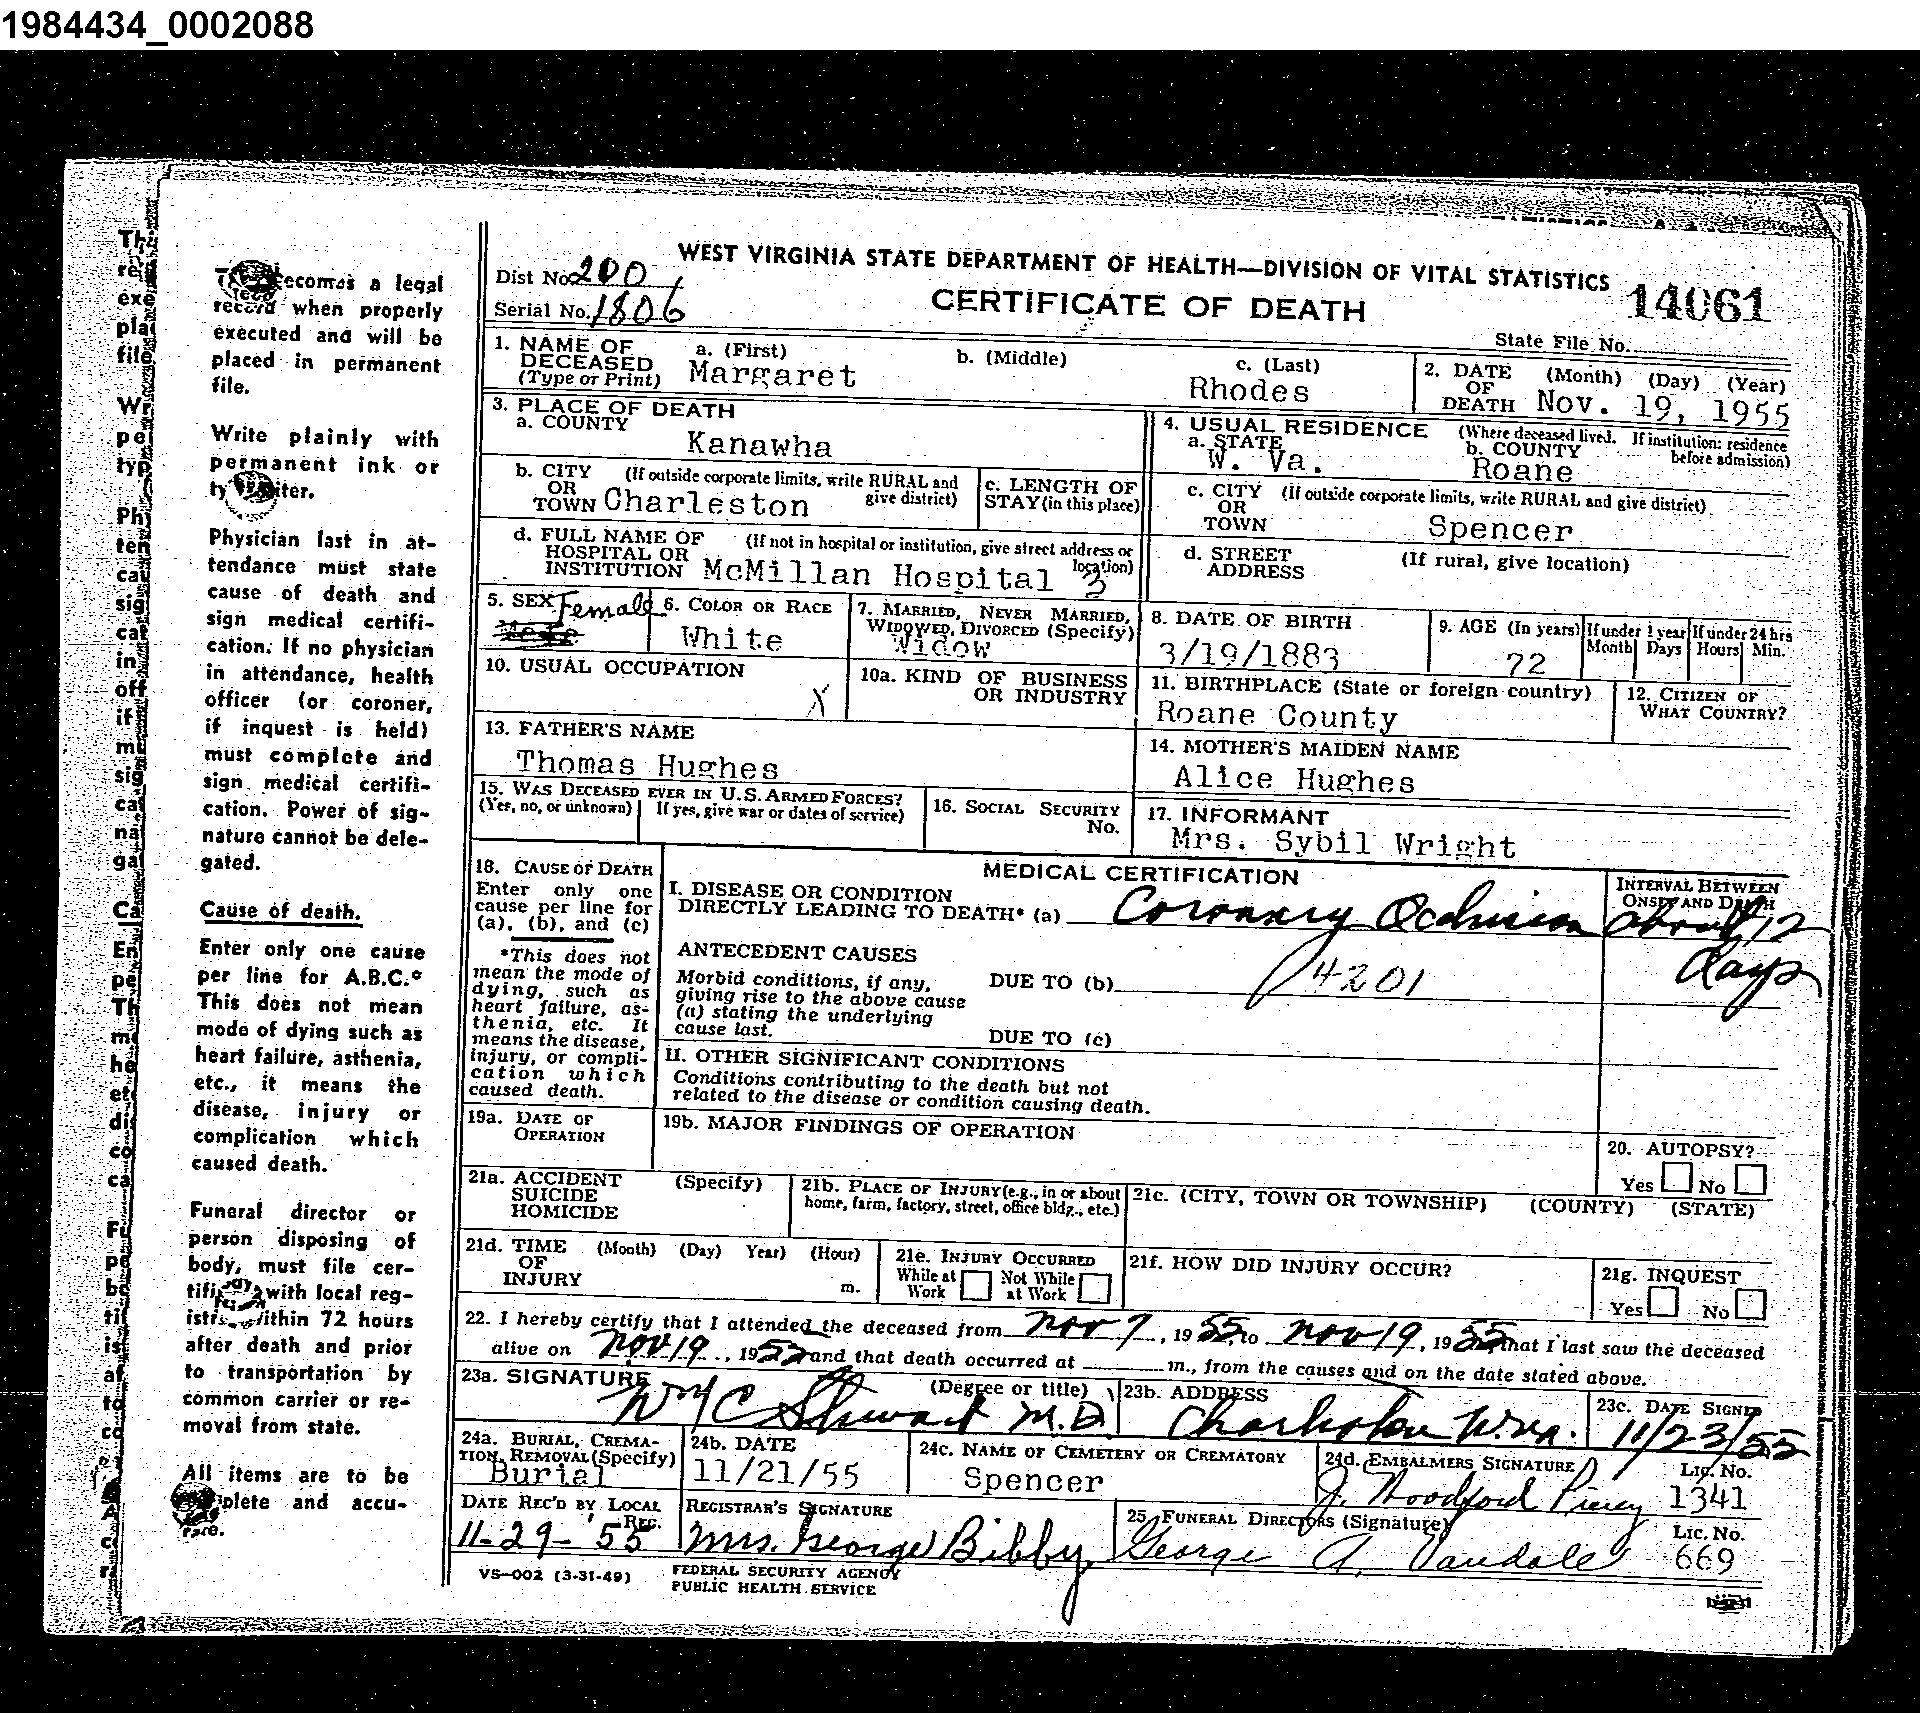 1984434_0002088
WEST VIRGINIA STATE DEPARTMENT OF HEALTH—DIVISION OF VITAL STATISTICS
CERTIFICATE OF DEATH
Dist No. 200
Serial No. 1806
14061
State File No.
1. NAME OF DECEASED (Type or Print) a. (First) b. (Middle) c. (Last)
Margaret Rhodes
2. DATE OF DEATH (Month) (Day) (Year)
Nov. 19, 1955
3. PLACE OF DEATH
a. COUNTY
Kanawha
b. CITY OR TOWN (If outside corporate limits, write RURAL and give district)
Charleston
c. LENGTH OF STAY (in this place)
d. FULL NAME OF HOSPITAL OR INSTITUTION (If not in hospital or institution, give street address or location)
McMillan Hospital 3
4. USUAL RESIDENCE (Where deceased lived. If institution: residence before admission)
a. STATE
W. Va.
b. COUNTY
Roane
c. CITY OR TOWN (If outside corporate limits, write RURAL and give district)
Spencer
d. STREET ADDRESS (If rural, give location)
5. SEX Female
6. COLOR OR RACE
White
7. MARRIED, NEVER MARRIED, WIDOWED, DIVORCED (Specify)
Widow
8. DATE OF BIRTH
3/19/1883
9. AGE (In years)
72
If under 1 year Month Days
If under 24 hrs Hours Min.
10. USUAL OCCUPATION
X
10a. KIND OF BUSINESS OR INDUSTRY
11. BIRTHPLACE (State or foreign country)
Roane County
12. CITIZEN OF WHAT COUNTRY?
13. FATHER'S NAME
Thomas Hughes
14. MOTHER'S MAIDEN NAME
Alice Hughes
15. WAS DECEASED EVER IN U.S. ARMED FORCES?
(Yes, no, or unknown) If yes, give war or dates of service)
16. SOCIAL SECURITY No.
17. INFORMANT
Mrs. Sybil Wright
18. CAUSE OF DEATH
Enter only one
cause per line for
(a), (b), and (c)
*This does not
mean the mode of
dying, such as
heart failure, as-
thenia, etc. It
means the disease,
injury, or compli-
cation which
caused death.
MEDICAL CERTIFICATION
I. DISEASE OR CONDITION
DIRECTLY LEADING TO DEATH* (a) Coronary Occlusion
INTERVAL BETWEEN ONSET AND DEATH
about 12
days
ANTECEDENT CAUSES
Morbid conditions, if any,
giving rise to the above cause
(a) stating the underlying
cause last.
DUE TO (b) 4201
DUE TO (c)
II. OTHER SIGNIFICANT CONDITIONS
Conditions contributing to the death but not
related to the disease or condition causing death.
19a. DATE OF OPERATION
19b. MAJOR FINDINGS OF OPERATION
20. AUTOPSY?
Yes No
21a. ACCIDENT SUICIDE HOMICIDE (Specify)
21b. PLACE OF INJURY (e.g., in or about home, farm, factory, street, office bldg., etc.)
21c. (CITY, TOWN OR TOWNSHIP) (COUNTY) (STATE)
21d. TIME OF INJURY (Month) (Day) Year) (Hour) m.
21e. INJURY OCCURRED
While at Work Not While at Work
21f. HOW DID INJURY OCCUR?
21g. INQUEST
Yes No
22. I hereby certify that I attended the deceased from Nov 7, 1955 to Nov 19, 1955 that I last saw the deceased
alive on Nov 19, 1955 and that death occurred at m., from the causes and on the date stated above.
23a. SIGNATURE (Degree or title)
Wm C Stewart M.D.
23b. ADDRESS
Charleston W.Va.
23c. DATE SIGNED
11/23/55
24a. BURIAL, CREMATION, REMOVAL (Specify)
Burial
24b. DATE
11/21/55
24c. NAME OF CEMETERY OR CREMATORY
Spencer
24d. EMBALMERS SIGNATURE
J. Woodford Piercy
Lic. No.
1341
DATE REC'D BY LOCAL REG.
11-29-'55
REGISTRAR'S SIGNATURE
Mrs. George Bibby
25. FUNERAL DIRECTORS (Signature)
George A. Vandale
Lic. No.
669
VS-002 (3-31-49)
FEDERAL SECURITY AGENCY
PUBLIC HEALTH SERVICE
becomes a legal
record when properly
executed and will be
placed in permanent
file.
Write plainly with
permanent ink or
Physician last in at-
tendance must state
cause of death and
sign medical certifi-
cation. If no physician
in attendance, health
officer (or coroner,
if inquest is held)
must complete and
sign medical certifi-
cation. Power of sig-
nature cannot be dele-
gated.
Cause of death.
Enter only one cause
per line for A.B.C.*
This does not mean
mode of dying such as
heart failure, asthenia,
etc., it means the
disease, injury or
complication which
caused death.
Funeral director or
person disposing of
body, must file cer-
with local reg-
within 72 hours
after death and prior
to transportation by
common carrier or re-
moval from state.
All items are to be
and accu-